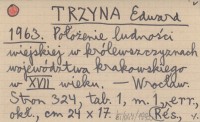 TRZYNA Edward
1963. Położenie ludności
wiejskiej w królewszczyznach
województwa krakowskiego
w XVII wieku. — Wrocław.
Stron 324, tab. 1, m. 1, err.,
okł., cm 24 x 17.
Res,